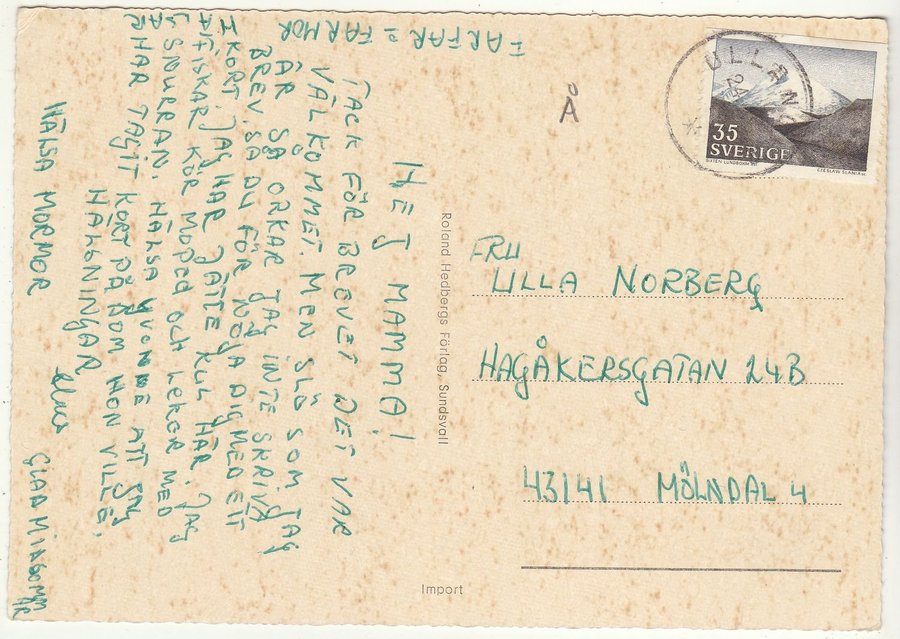 HEJ MAMMA!
TACK FÖR BREVET DET VAR
VÄLKOMMET. MEN SLÖ SOM JAG
ÄR SÅ ORKAR JAG INTE SKRIVA
BREV. SÅ DU FÅR NÖJA DIG MED ETT
KORT. JAG HAR JÄTTE KUL HÄR. JAG
FISKAR, KÖR MOPED OCH LEKER MED
SNURRAN. HÄLSA YVONNE ATT JAG
HAR TAGIT KORT PÅ DOM HON VILLE.
HÄLSNINGAR
HÄLSA MORMOR
GLAD MIDSOMMAR
FARFAR o FARMOR
Å
Roland Hedbergs Förlag, Sundsvall
Import
ULLÅNG
24
35
SVERIGE
CZESLAW SLANIA SC
FRU
ULLA NORBERG
HAGÅKERSGATAN 24B
43141 MÖLNDAL 4